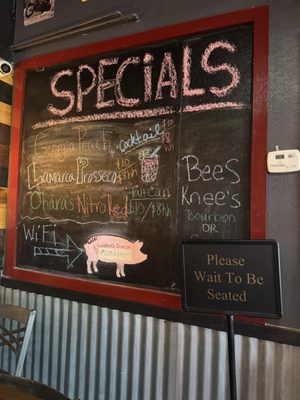 SPECIALS
Georgia Peach cocktail
Lamarca Prosecco
Ohara's Nitro Red
Tall can
$10/$8hh
WiFi
Bees
Knee's
Bourbon
OR
Please
Wait To Be
Seated